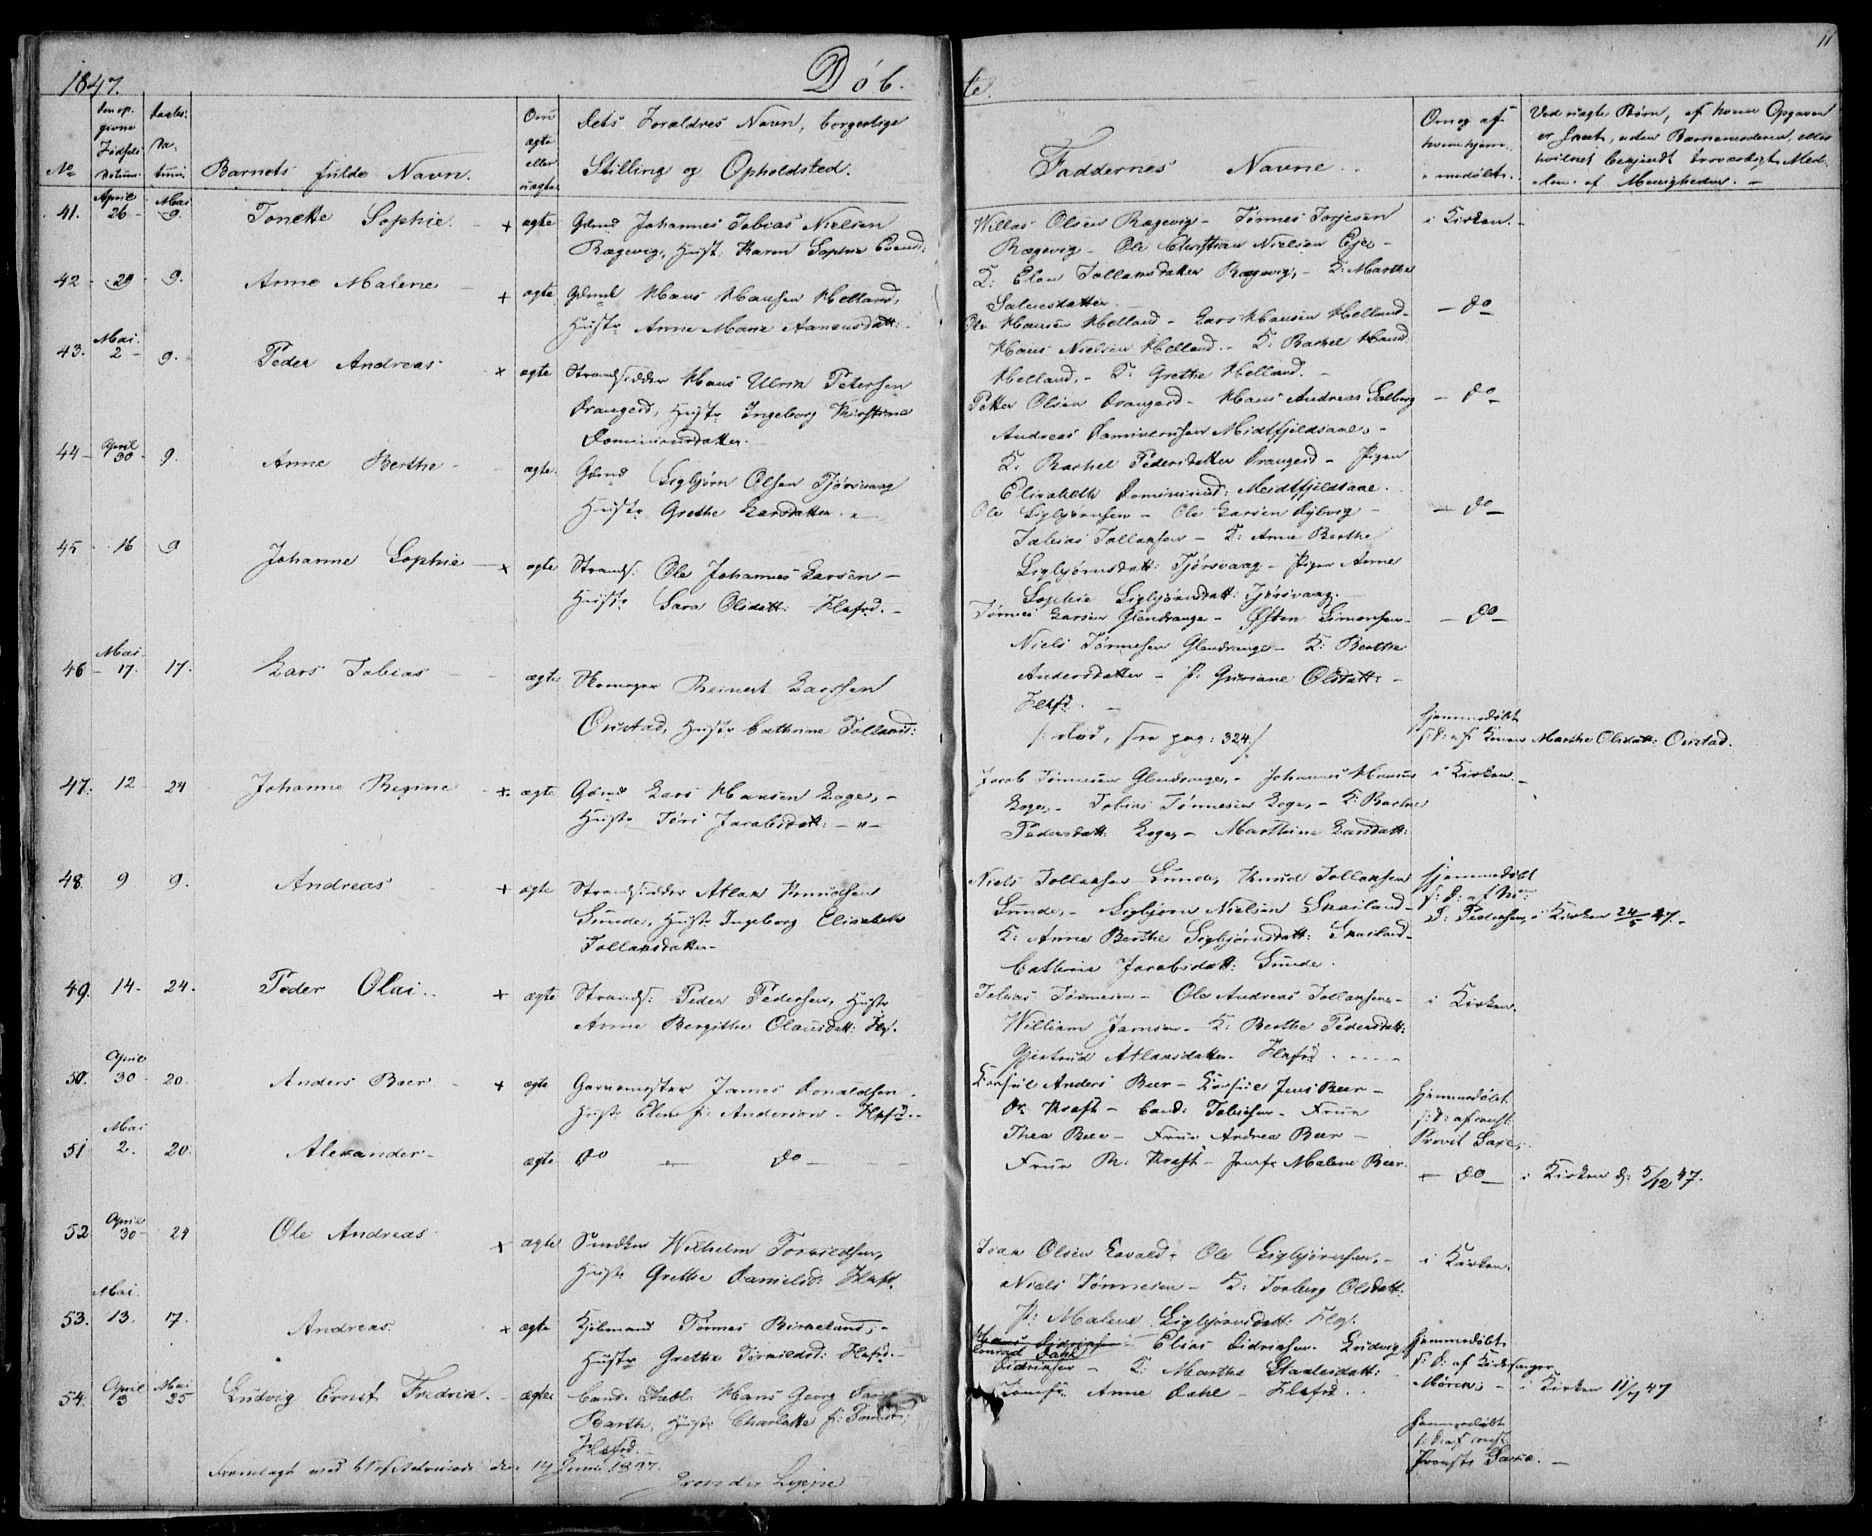 1847. Døb- te. 11
No
Den op-
givne
Fødsels
Datum
Daabs-
Da-
tum
Barnets fulde Navn.
Om
ægte
eller
uægte
Dets Forældres Navn, borgerlige
Stilling og Opholdsted.
Faddernes Navne.
Om og af
hvem hjem-
medøbt.
Ved uægte Børn, af hvem Opgaven
er skeet, uden Barnemoderen, eller
hvilket bekjendt troværdigt Med-
lem af Menigheden. -
41. April 26 - Mai 9. Tonette Sophie. + ægte Gdmd Johannes Tobias Nielsen
Rægevig, Hust: Karen Sophie Evensd:
Willas Olsen Rægevig - Tønnes Torjesen
Rægevig - Ole Christian Nielsen Eje -
K: Elen Tollansdatter Rægevig, - K: Marthe
Salvesdatter. -
i Kirken. -
42 - 29 - 9. Anne Malene + ægte Gdmd Hans Hansen Helland,
Hustr Anne Marie Aanensdatt: -
Ole Hansen Helland - Lars Hansen Helland -
Hans Nielsen Helland. - K: Rachel Hansd
Helland. - K: Grethe Helland. -
- do -
43. Mai 2 - 9. Peder Andreas + ægte Strandsidder Hans Ulrik Petersen
Drangeid, Hustr Ingeborg Kirstine
Dominicusdatter. -
Petter Olsen Drangeid - Hans Andreas Salberg
Andreas Dominicusen Midtfjeldsaae, -
K: Rachel Pedersdatter Drangeid - Pigen
Elisabeth Dominicusd: Meidtfjeldsaae.
- do -
44 - April 30 - 9. Anne Berthe - ægte. Gdmd Sigbjørn Olsen Tjørsvaag
Hustr Grethe Larsdatter. "
Ole Sigbjørnsen - Ole Larsen Dybvig -
Tobias Tollaksen - K: Anne Berthe
Sigbjørnsdatt: Tjørsvaag - Pigen Anne
Sophie Sigbjørnsdatt: Tjørsvaag. -
- do -
45 - 16 9 Johanne Sophie - + ægte Strands: Ole Johannes Larsen -
Hustr Sara Olsdatt: Flefrd. -
Tønnes Larsen Glendrange - Østen Simonsen -
Niels Tønnesen Glendrange - K: Berthe
Andersdatter - P: Guriane Olsdatt: -
Flefrd. -
- do -
46 - Mai 17. 17. Lars Tobias - ægte Skomager Reinert Larssen
Ousdad, Hustr Cathrine Tollaksd:
/: død, see pag: 324 :/
hjemmedøbt
f: D: af Konen Marthe Olsdatt: Ousdad.
47. 12 - 24 Johanne Regine + ægte Gdmd Lars Hansen Loge, -
Hustr Tøri Jacobsdatt: - " -
Jacob Tønnesen Glendrange, - Johannes Hansen
Loge, - Tobias Tønnesen Loge, - K: Rachel
Pedersdatt: Loge, - Marthine Larsdatt:
i Kirken. -
48. 9 9. Andreas + ægte Strandsidder Atlak Knudsen
Sunde, Hustr Ingeborg Elisabeth
Tollaksdatter -
Niels Tollaksen Sunde, Knud Tollaksen
Sunde, - Sigbjørn Nielsen Skailand -
K: Anne Berthe Sigbjørnsdatt: Skailand -
Cathrine Jacobsdatt: Sunde.
hjemmedøbt
f: D: af
P: Pedersen, i Kirken 24/5 47. -
49. 14 - 24. Peder Olai. + ægte Strands: Peder Pedersen, Hustr
Anne Bergithe Olausdatt: Flf.
Tobias Tønnesen - Ole Andreas Tollaksen -
William Jansen - K: Berthe Pedersdatt:
Gjertrud Atlaksdatter Flefrd.
i Kirken.
50. April 30 - 20. Anders Beer - + ægte Garvemester James Donaldsen,
Hustr Elen f: Anderson - Flefrd. -
Konsul Anders Beer - Konsul Jens Beer -
Dr. Kraft - Cand: Tobiesen - Fruen
Thea Beer - Frue Andrea Beer -
Frue M: Kraft - Jomfr Malene Beer.
hjemmedøbt
f: D: af const
Provst Saxe,
51 Mai 2. 20. Alexander - ægte do - do -
- do - i Kirken d: 5/12 47.
52 April 30 - 24 Ole Andreas + ægte Snedker Wilhelm Torkildsen,
Hustr Grethe Danielsd: Flefrd.
Isak Olsen Egvald - Ole Sigbjørnsen, -
Niels Tønnesen - K: Torberg Olsdatt:
P: Malene Sigbjørnsdatt: Flef.
i Kirken.
53. Mai. 13. 17. Andreas. + ægte Kjøbmand Tønnes Birkeland, -
Hustr Grethe Torkildsd: Flefrd. -
Hans Didriksen - Elias Didriksen Ludvig
Conrad Dahl
Didriksen - K: Marthe Staalesdatt:
Jomfr Anne Dahl - Flefrd.
hjemmedøbt
f: D: af Kirkesanger
Møren, - i Kirken 11/7 47
54. April 3 Mai 25 Ludvig Ernst Fredrik. - ægte Cand: Theol. Hans Georg
Barth, Hustr Charlotte f:
Flefrd. -
hjemmedøbt
f: D: af const
Provst Saxe. -
Fremlagt ved den 14 Juni 1847.